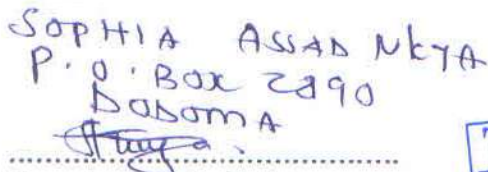 SOPHIA ASSAD NKYA
P.O. BOX 2890
DODOMA